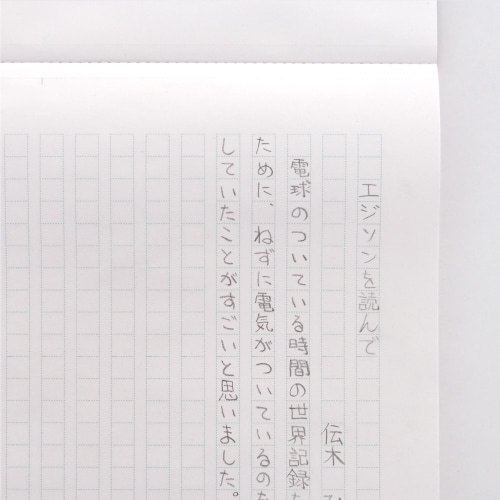 エジソンを読んで
伝木
電球のついている時間の世界記録
ために、ねずに電気がついているのを
していたことがすごいと思いました。